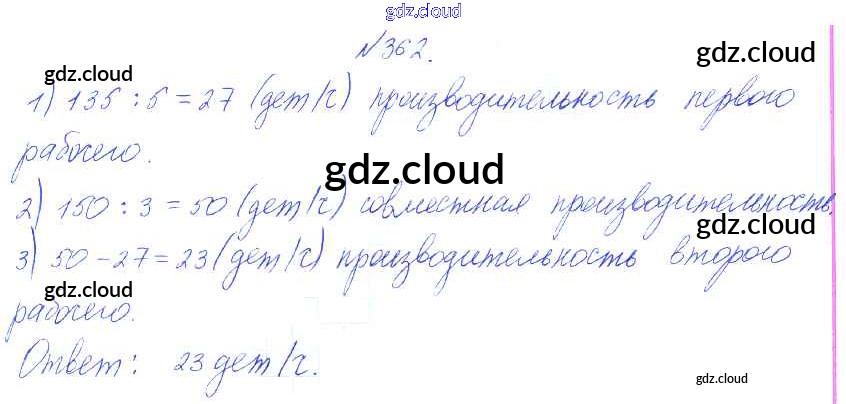 gdz.cloud
№362.
gdz.cloud
gdz.cloud
1) 135 : 5 = 27 (дет/ч) производительность первого
рабочего.
gdz.cloud
2) 150 : 3 = 50 (дет/ч) совместная производительность.
gdz.cloud
3) 50 - 27 = 23 (дет/ч) производительность второго
gdz.cloud
рабочего.
Ответ: 23 дет/ч.
gdz.cloud